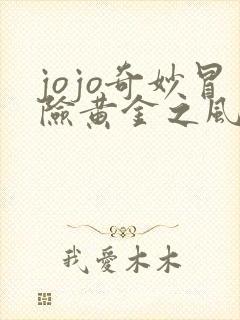 jojo奇妙冒
險黃金之風
我愛木木